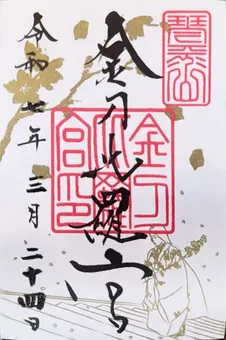 琴平山
金刀比羅宮
金刀比羅宮印
令和七年三月二十四日